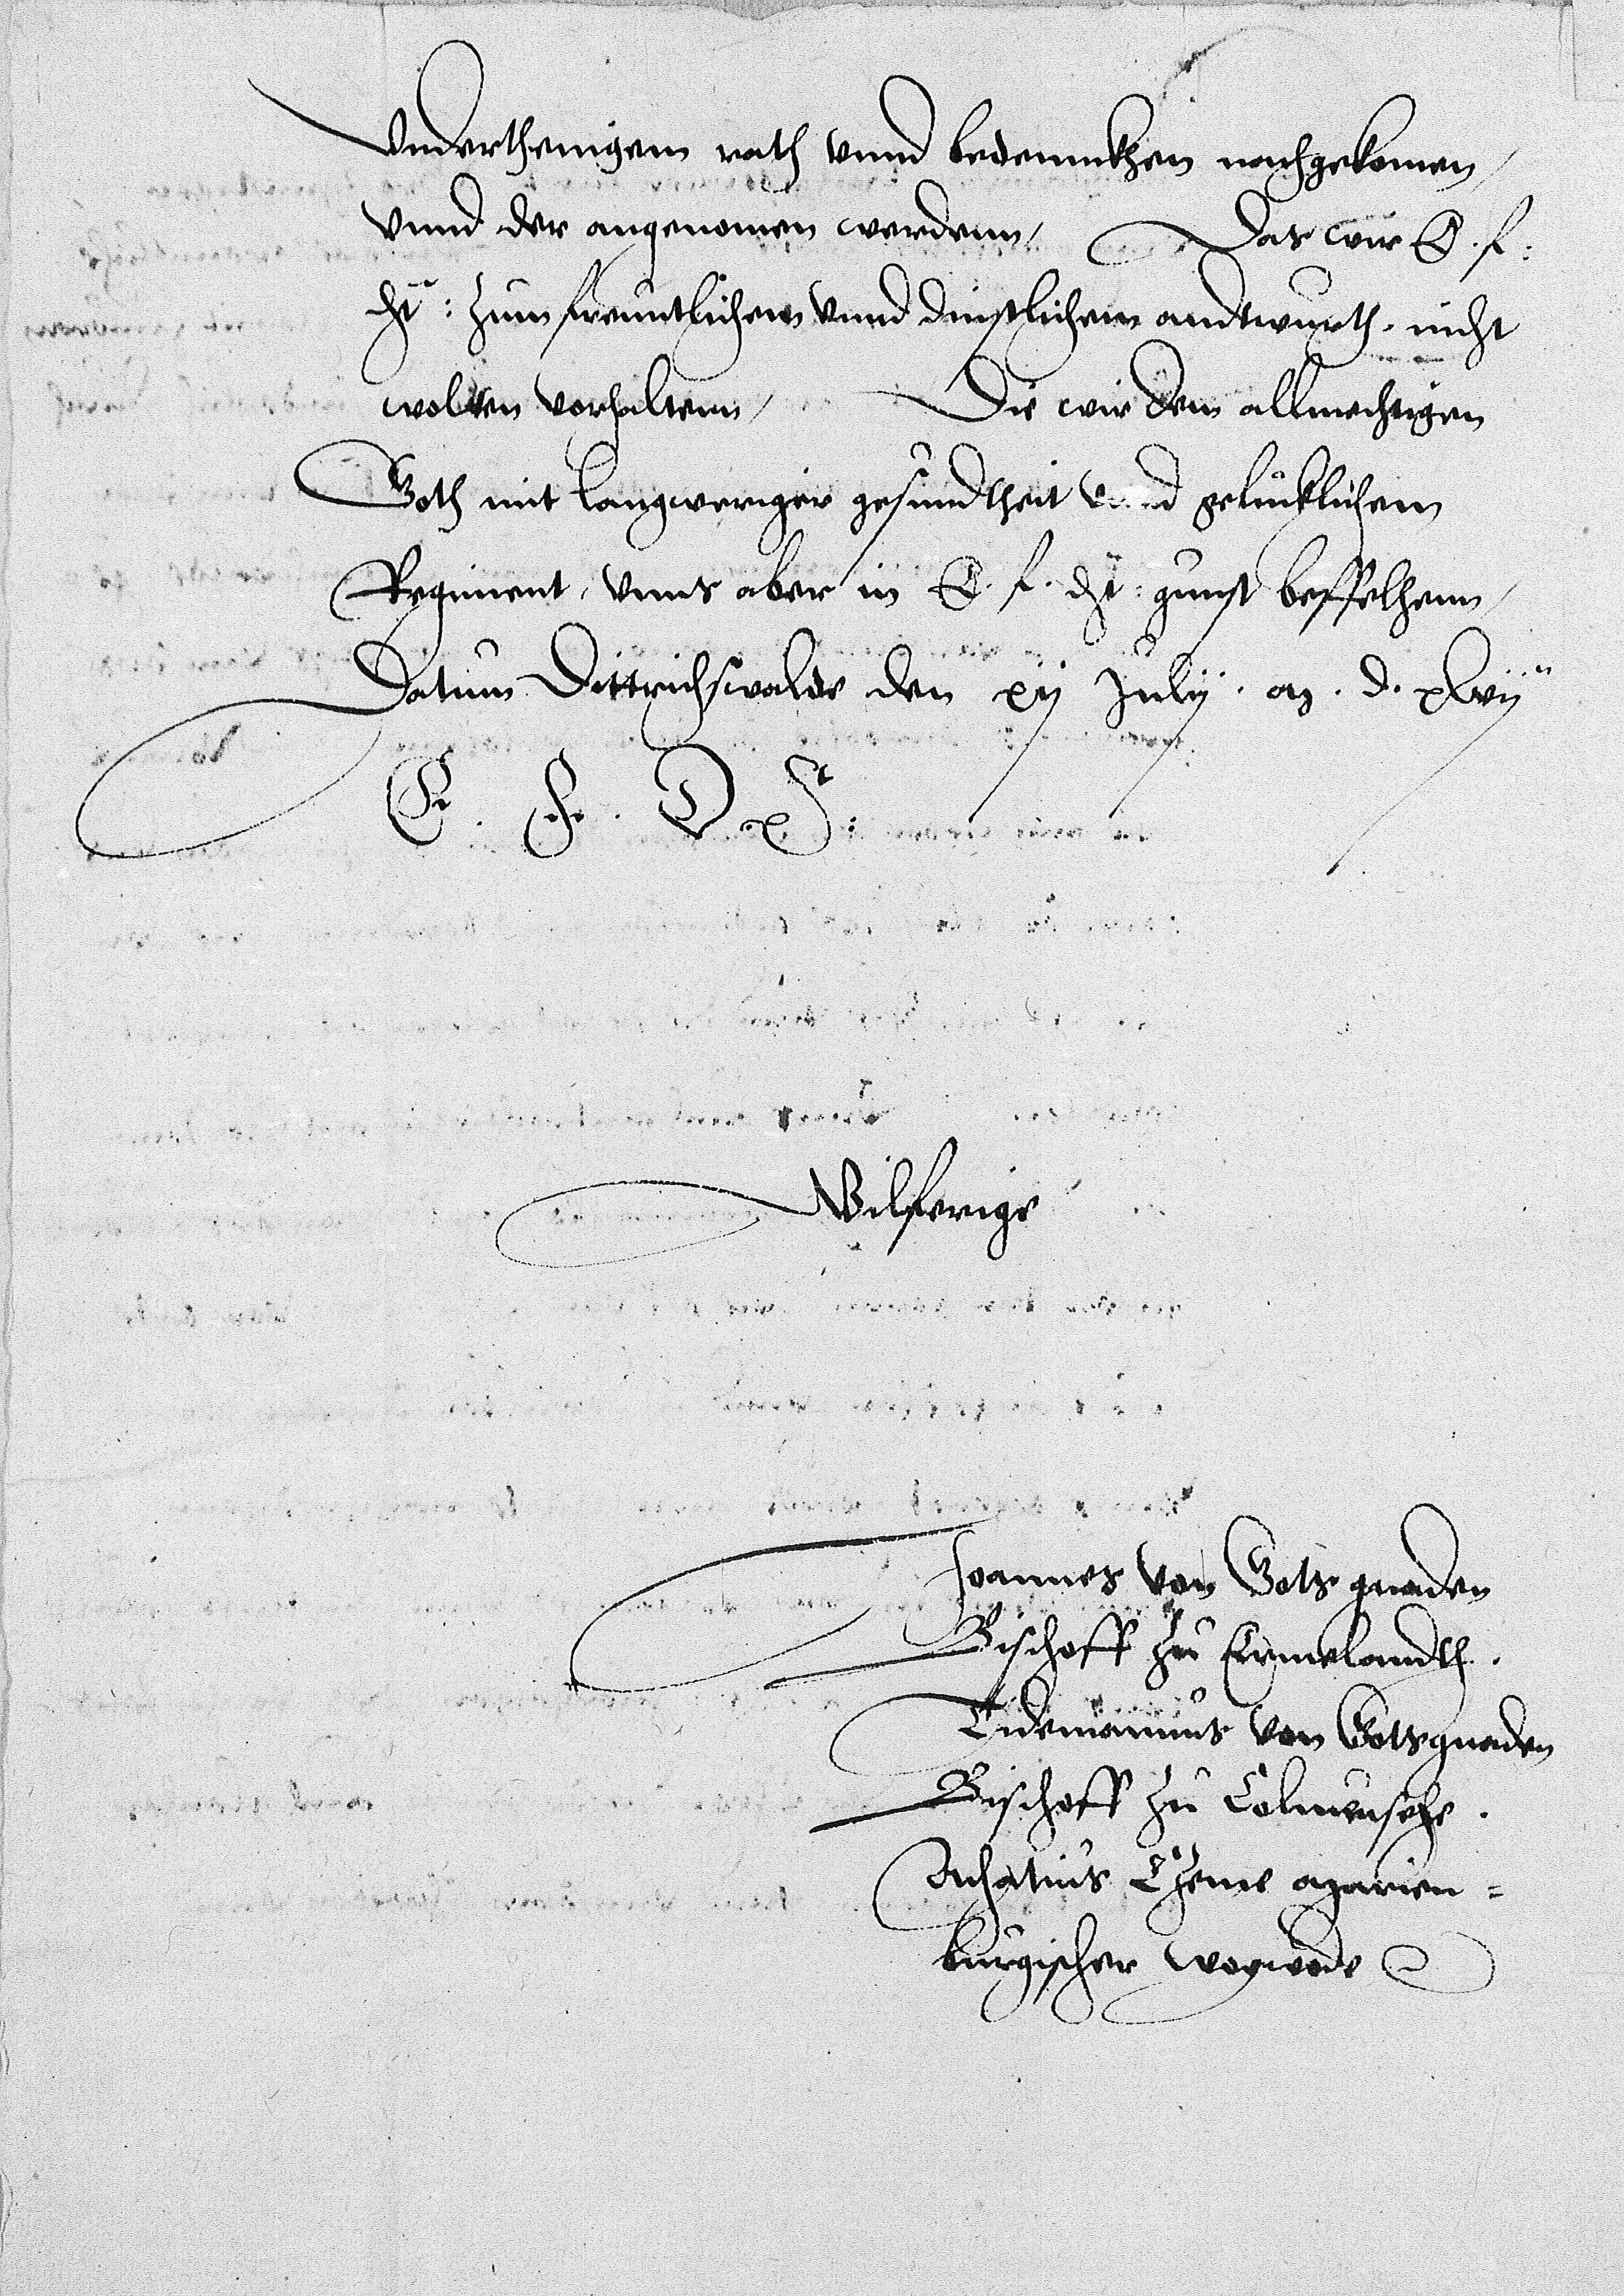 Vnderthenigem rath vnnd bedennckhen nachgekomen /
vnnd der angenomen werdenn / Das wir E. f.
dt: zum freuntlichem vnnd dinstlichem andtwurth. nicht
wolten vorhaltenn / Die wir dem allmechtigen
Goth mit langweriger gesundtheit vnnd gelucklichem
Regiment, vnns aber in E. f. dt: gunst beffelhenn /
Datum Dittrichswalde den xij Julij. M. d. xlvij
E. F. D.
Wilferige
Joannes von Gots gnaden
Bischoff zu Ermelandth.
Tidemannus von Gotsgnaden
Bischoff zu Colmensehe.
Achatius Czeme Marien=
burgischer woywode